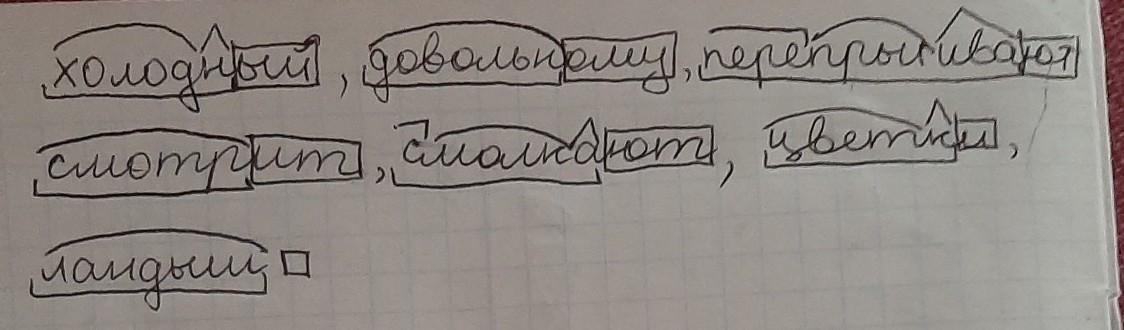 холодный, довольному, перепрыгивают
смотрит, смолкают, цветки,
ландыш